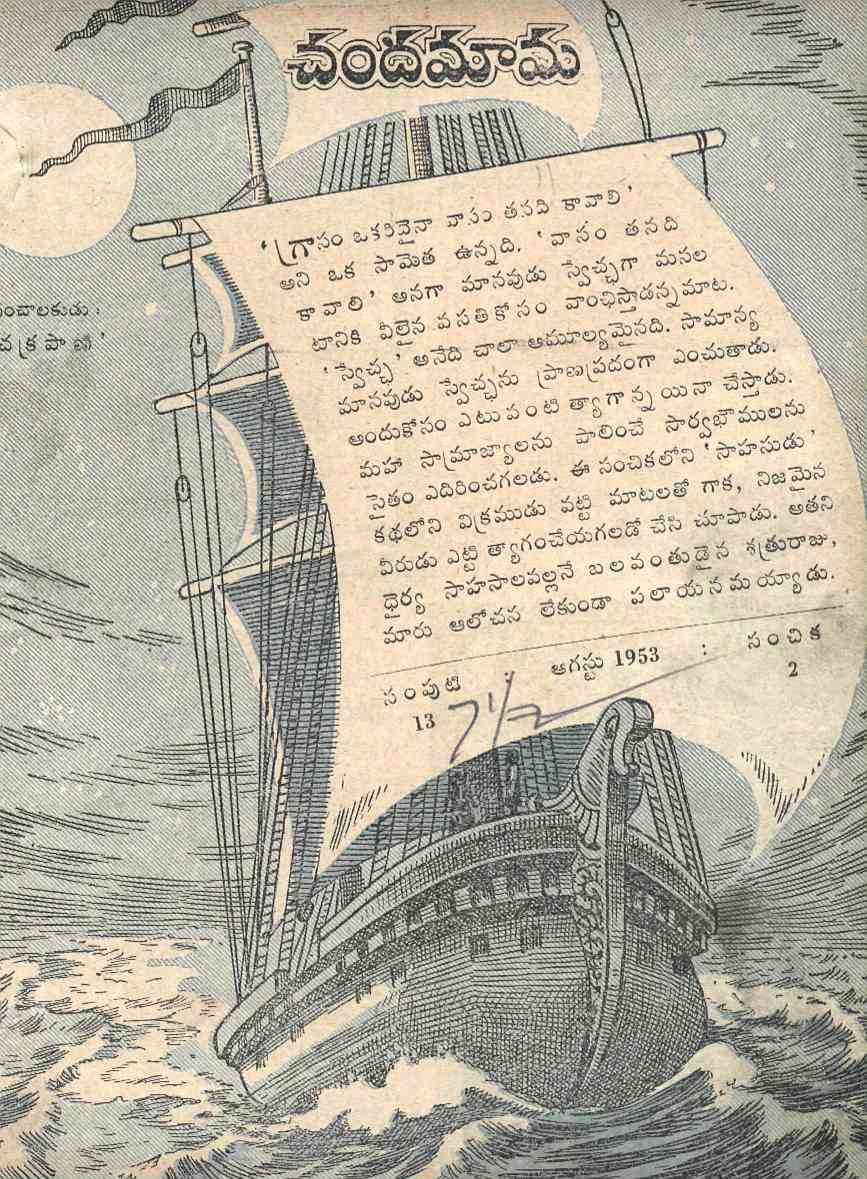 చందమామ
'గ్రాసం ఒకరివైనా వాసం తనది కావాలి'
అని ఒక సామెత ఉన్నది. 'వాసం తనది
కావాలి' అనగా మానవుడు స్వేచ్ఛగా మసల
టానికి వీలైన వసతికోసం వాంఛిస్తాడన్నమాట.
'స్వేచ్ఛ' అనేది చాలా అమూల్యమైనది. సామాన్య
మానవుడు స్వేచ్ఛను ప్రాణప్రదంగా ఎంచుతాడు.
అందుకోసం ఎటువంటి త్యాగాన్నయినా చేస్తాడు.
మహా సామ్రాజ్యాలను పాలించే సార్వభౌములను
సైతం ఎదిరించగలడు. ఈ సంచికలోని 'సాహసుడు'
కథలోని విక్రముడు వట్టి మాటలతో గాక, నిజమైన
వీరుడు ఎట్టి త్యాగంచేయగలడో చేసి చూపాడు. అతని
ధైర్య సాహసాలవల్లనే బలవంతుడైన శత్రురాజు,
మారు ఆలోచన లేకుండా పలాయనమయ్యాడు.
సంపుటి : ఆగస్టు 1953 : సంచిక
13 2
71/2
ంచాలకుడు :
చక్రపాణి'